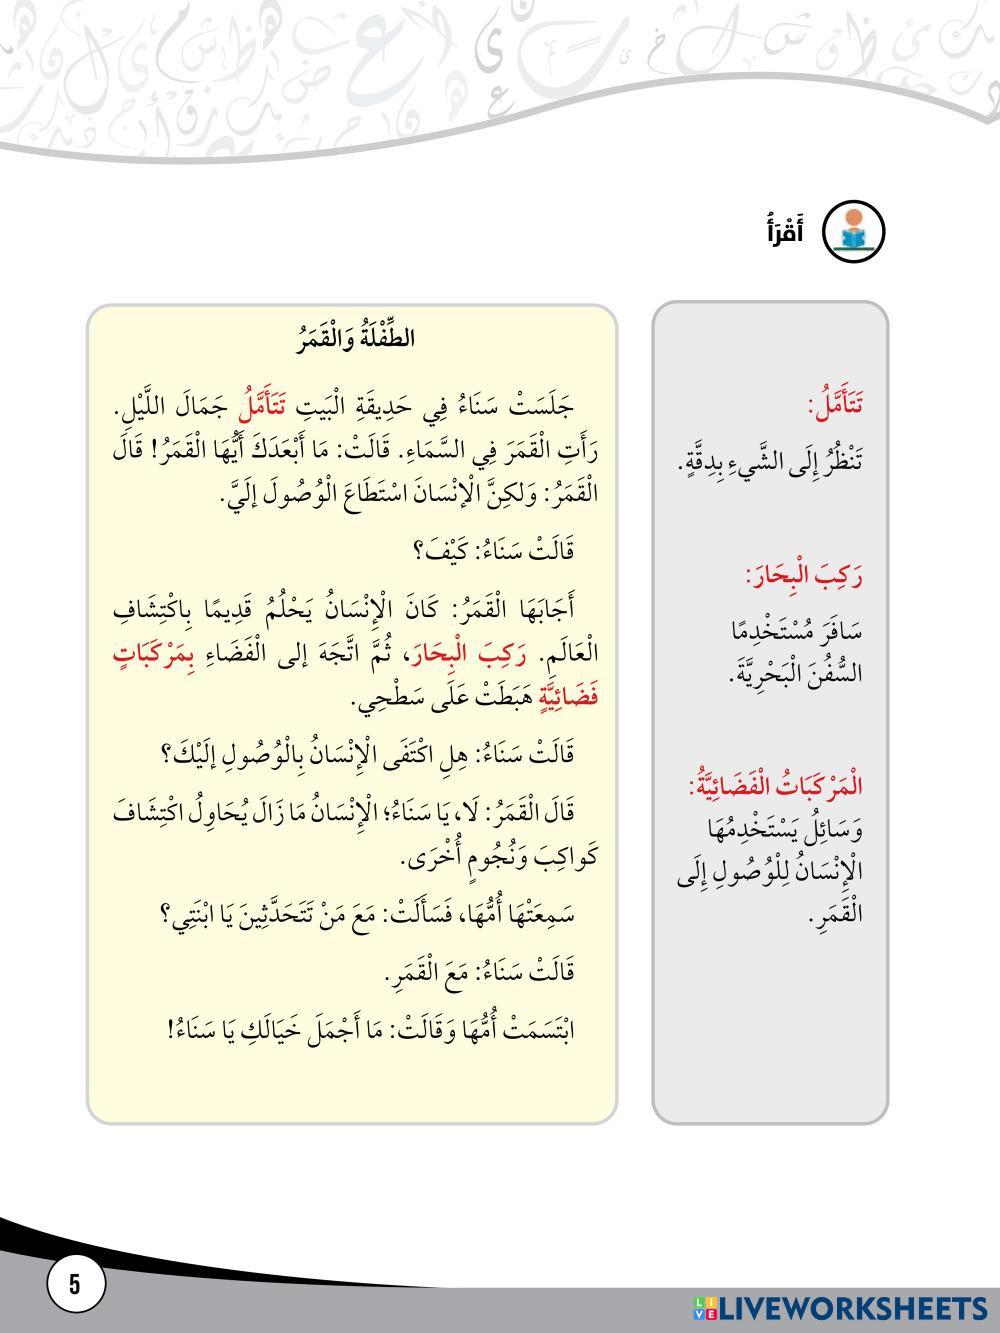 أَقْرَأُ
الطِّفْلَةُ وَالْقَمَرُ
جَلَسَتْ سَنَاءُ فِي حَدِيقَةِ الْبَيتِ تَتَأَمَّلُ جَمَالَ اللَّيْلِ.
رَأَتِ الْقَمَرَ فِي السَّمَاءِ. قَالَتْ: مَا أَبْعَدَكَ أَيُّهَا الْقَمَرُ! قَالَ
الْقَمَرُ: وَلكِنَّ الْإنْسَانَ اسْتَطَاعَ الْوُصُولَ إلَيَّ.
قَالَتْ سَنَاءُ: كَيْفَ؟
أَجَابَهَا الْقَمَرُ: كَانَ الْإِنْسَانُ يَحْلُمُ قَدِيمًا بِاكْتِشَافِ
الْعَالَمِ. رَكِبَ الْبِحَارَ، ثُمَّ اتَّجَهَ إلى الْفَضَاءِ بِمَرْكَبَاتٍ
فَضَائِيَّةٍ هَبَطَتْ عَلَى سَطْحِي.
قَالَتْ سَنَاءُ: هِلِ اكْتَفَى الْإِنْسَانُ بِالْوُصُولِ إلَيْكَ؟
قَالَ الْقَمَرُ: لَا، يَا سَنَاءُ؛ الْإِنْسَانُ مَا زَالَ يُحَاوِلُ اكْتِشَافَ
كَواكِبَ وَنُجُومٍ أُخْرَى.
سَمِعَتْهَا أُمُّهَا، فَسَأَلَتْ: مَعَ مَنْ تَتَحَدَّثِينَ يَا ابْنَتِي؟
قَالَتْ سَنَاءُ: مَعَ الْقَمَرِ.
ابْتَسَمَتْ أُمُّهَا وَقَالَتْ: مَا أَجْمَلَ خَيَالَكِ يَا سَنَاءُ!
تَتَأَمَّلُ:
تَنْظُرُ إِلَى الشَّيءِ بِدِقَّةٍ.
رَكِبَ الْبِحَارَ:
سَافَرَ مُسْتَخْدِمًا
السُّفُنَ الْبَحْرِيَّةَ.
الْمَرْكَبَاتُ الْفَضَائِيَّةُ:
وَسَائِلُ يَسْتَخْدِمُهَا
الْإِنْسَانُ لِلْوُصُولِ إِلَى
الْقَمَرِ.
5
LIVEWORKSHEETS